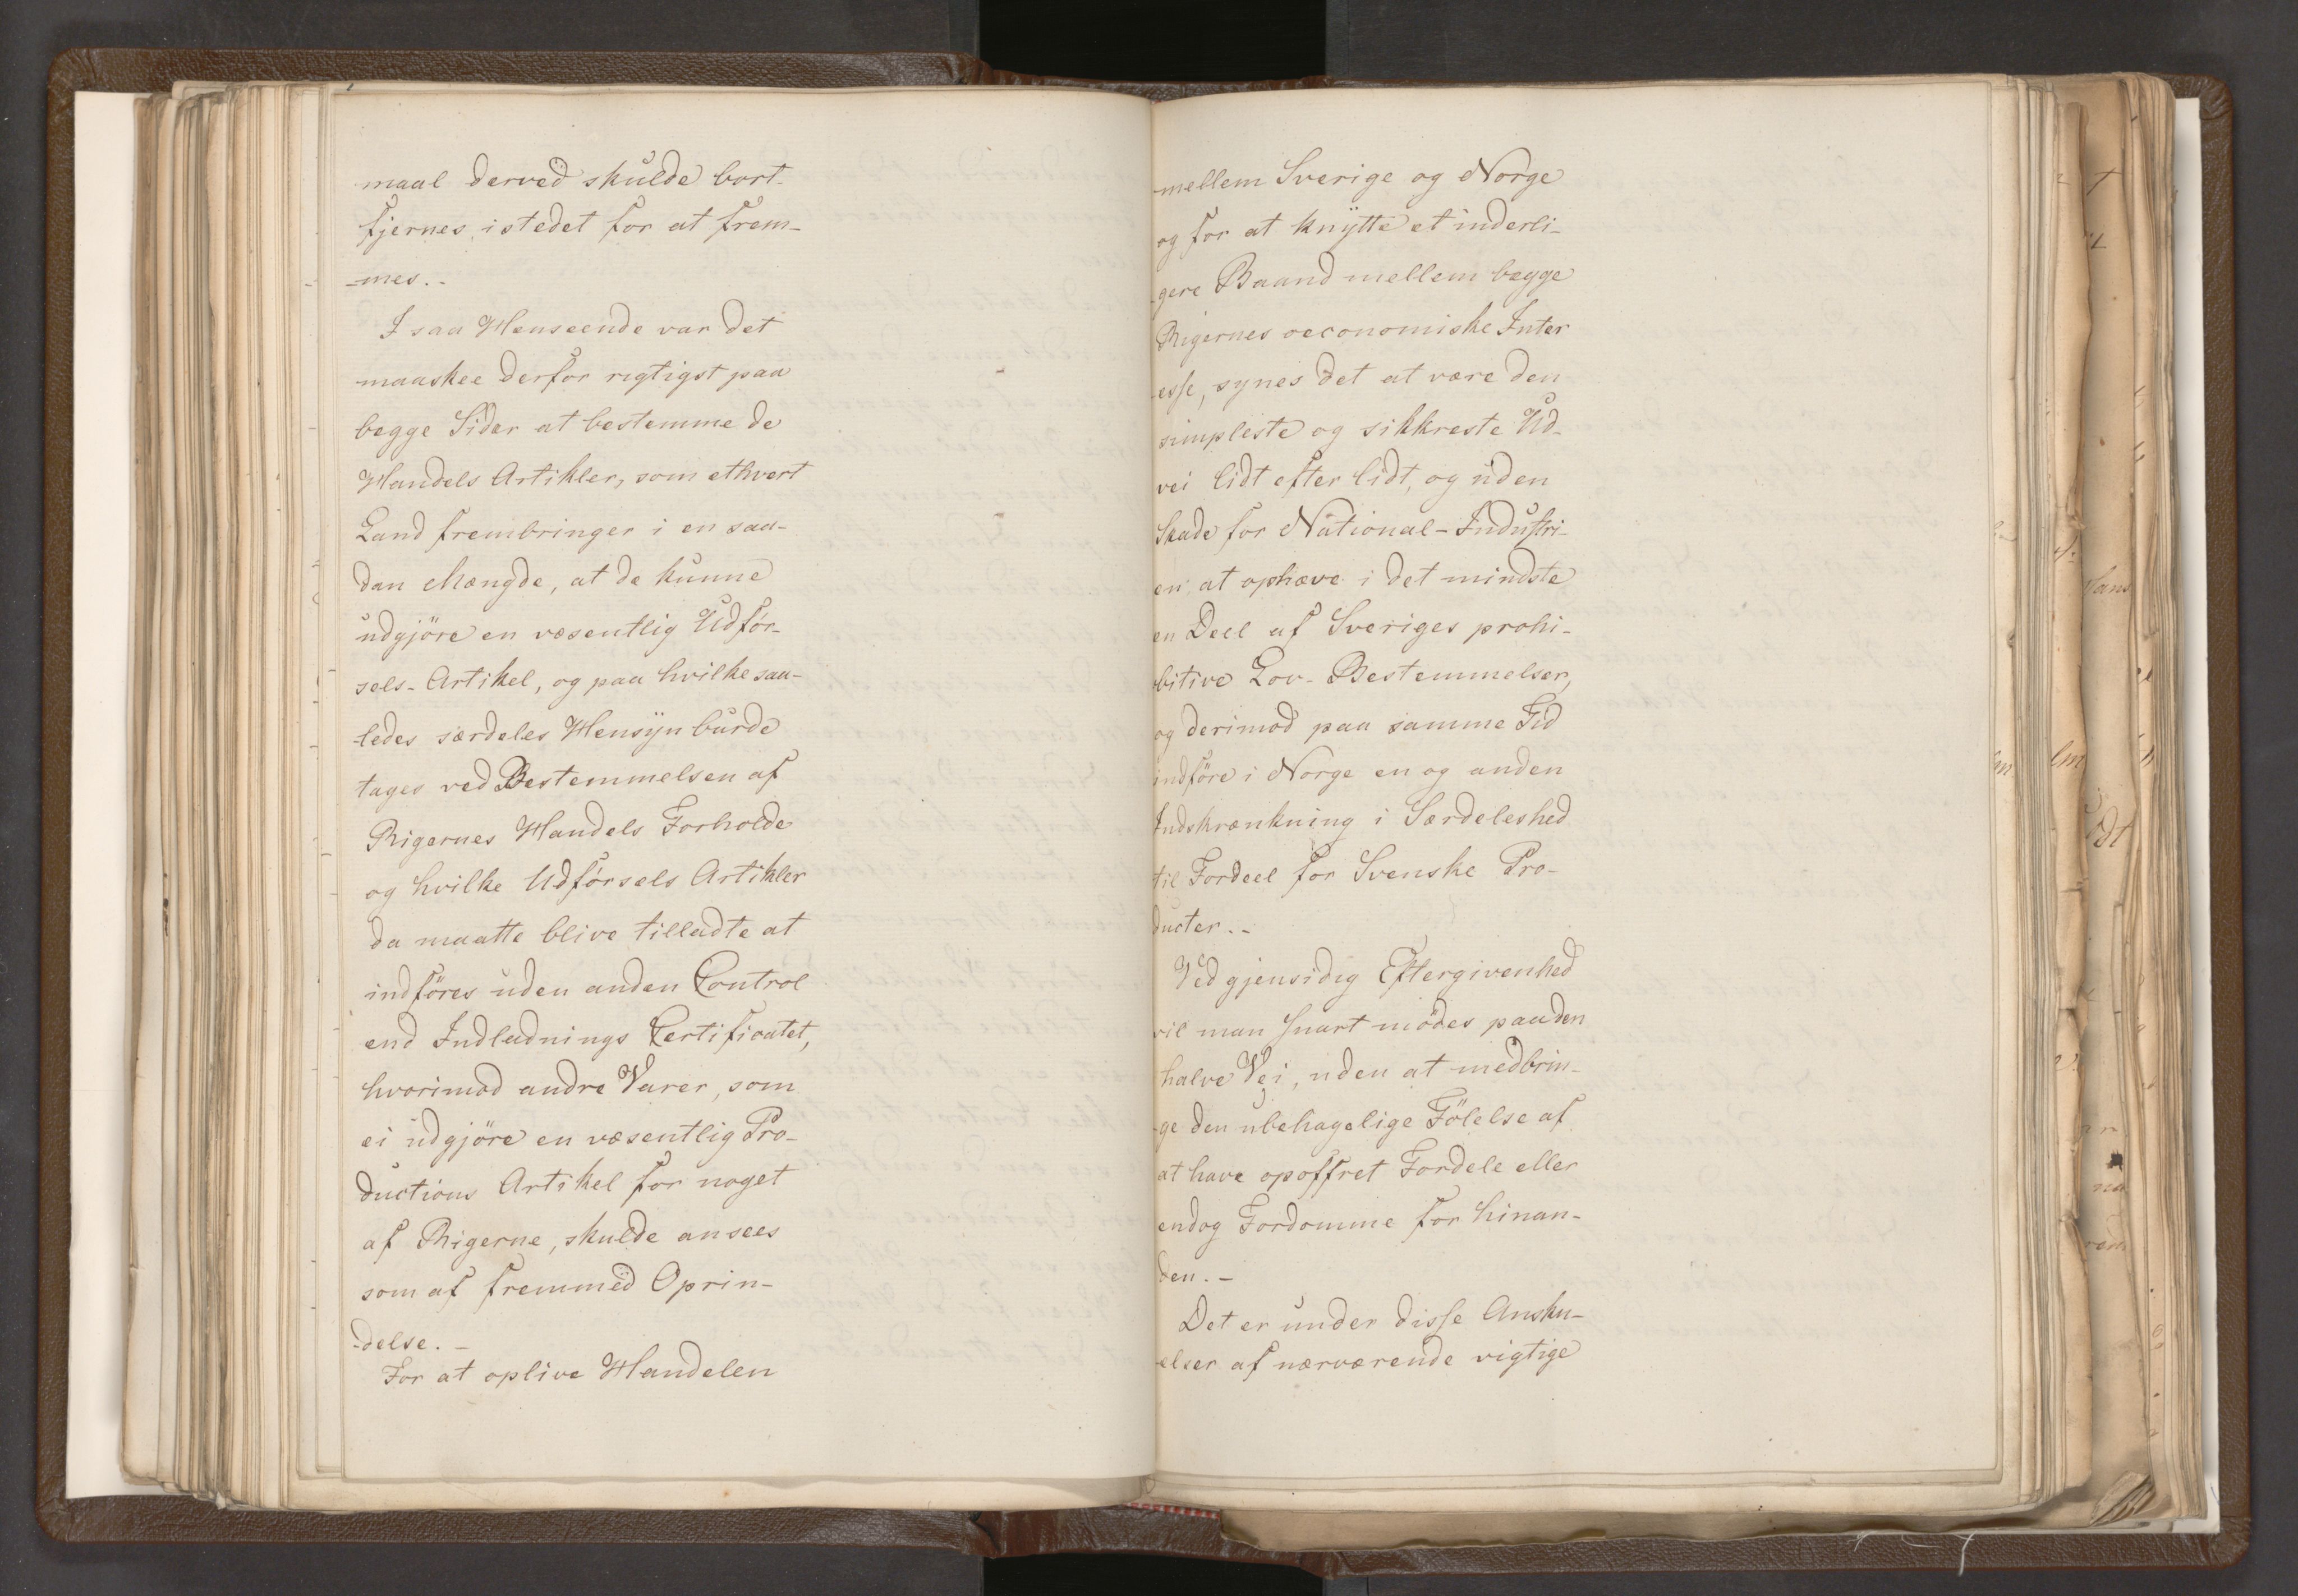 maal derved skulde bort-
fjernes, istedet for at frem-
-mes.-
I saa Henseende var det
maaskee derfor rigtigst paa
begge Sider at bestemme de
Handels Artikler, som ethvert
Land frembringer i en saa-
dan Mængde, at de kunne
udgjöre en væsentlig Udför-
sels- Artikel, og paa hvilke saa-
-ledes særdeles Hensyn burde
tages ved Bestemmelsen af
Rigernes Handels Forholde
og hvilke Udförsels Artikler
da maatte blive tilladte at
indföres uden anden Control
end Indladnings Certificatet,
hvorimod andre Varer, som
ei udgjöre en væsentlig Pro-
ductions Artikel for noget
af Rigerne, skulde ansees
som af fremmed Oprin-
-delse.-
For at oplive Handelen
mellem Sverige og Norge
og for at knytte et inderli-
-gere Baand mellem begge
Rigernes oeconomiske Inter
esse, synes det at være den
simpleste og sikkreste Ud-
vei lidt efter lidt, og uden
Skade for National-Industri-
en at ophæve i det mindste
en Deel af Sveriges prohi-
bitive Lov- Bestemmelser,
og derimod paa samme Tid
indföre i Norge en og anden
Indskrænkning i Særdeleshed
til Fordeel for Svenske Pro-
ducter.-
Ved gjensidig Eftergivenhed
vil man snart mödes paa den
halve Vei, uden at medbrin-
-ge den ubehagelige Fölelse af
at have opoffret Fordele eller
endog Fordomme for hinan-
den.-
Det er under disse Ansku-
elser af nærværende vigtige